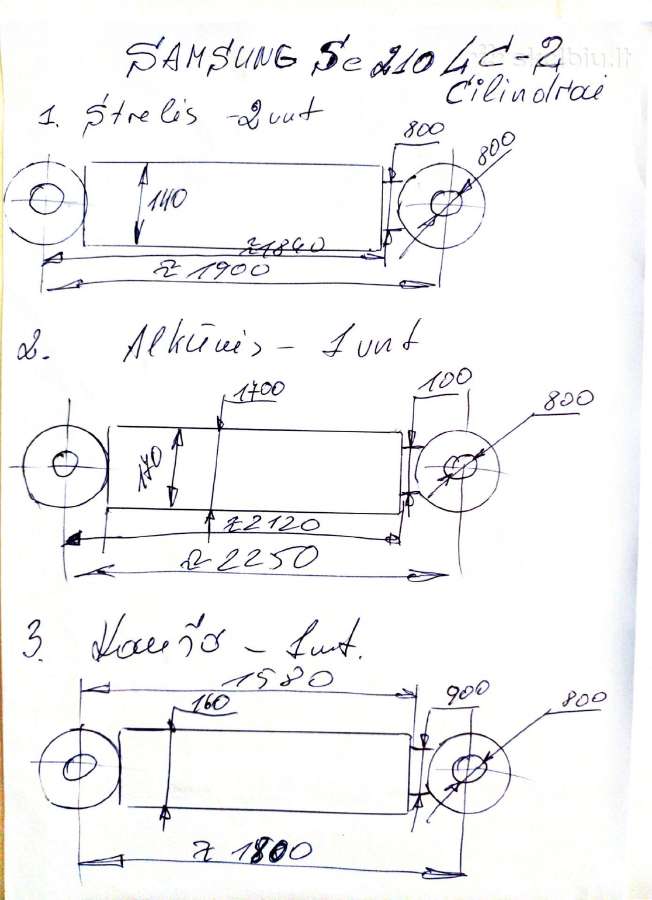 SAMSUNG Se 210 LC-2
Cilindrai
1. Strelis - 2vnt
800
800
140
≈1840
≈ 1900
2. Alkūnis - 1 vnt
1700
100
800
170
≈2120
≈ 2250
3. Kaušo - 1vnt.
1580
160
900
800
≈ 1800